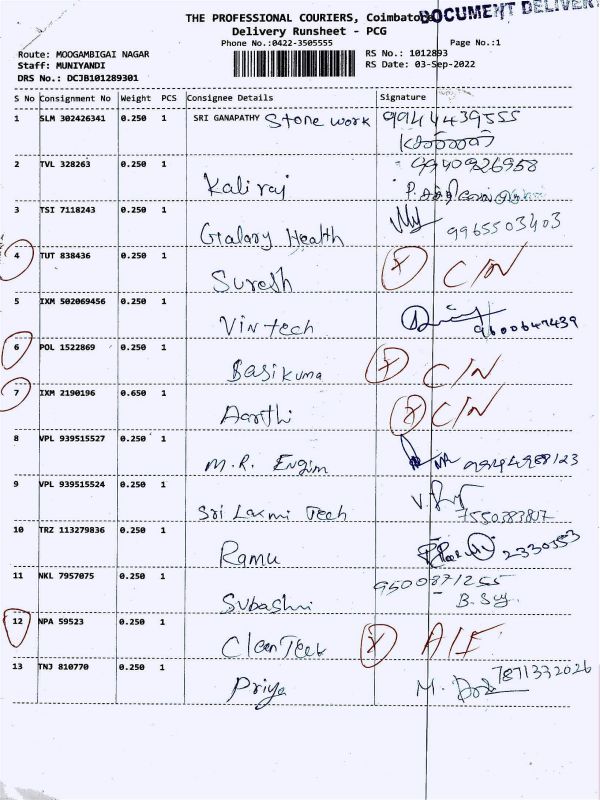 THE PROFESSIONAL COURIERS, Coimbatore
DOCUMENT DELIVERY
Delivery Runsheet - PCG
Phone No.:0422-3505555
Page No.:1
Route: MOOGAMBIGAI NAGAR
RS No.: 1012893
Staff: MUNIYANDI
RS Date: 03-Sep-2022
DRS No.: DCJB101289301
S No Consignment No Weight PCS Consignee Details Signature
1 SLM 302426341 0.250 1 SRI GANAPATHY Stone work 9944439555
2 TVL 328263 0.250 1 9940926958
Kaliraj
3 TSI 7118243 0.250 1
Galaxy Health 9965503403
4 TUT 838436 0.250 1
Suresh X C/N
5 IXM 502069456 0.250 1
Vintech 9600647439
6 POL 1522869 0.250 1
Basikuma X C/N
7 IXM 2190196 0.650 1
Aarthi X C/N
8 VPL 939515527 0.250 1
M.R. Engim
9 VPL 939515524 0.250 1
Sri Laxmi Tech 7550383817
10 TRZ 113279836 0.250 1
Ramu 2330553
11 NKL 7957075 0.250 1 9500871255
Subashri
12 NPA 59523 0.250 1
CleanTech X A/F
13 TNJ 810770 0.250 1 7871332026
Priya